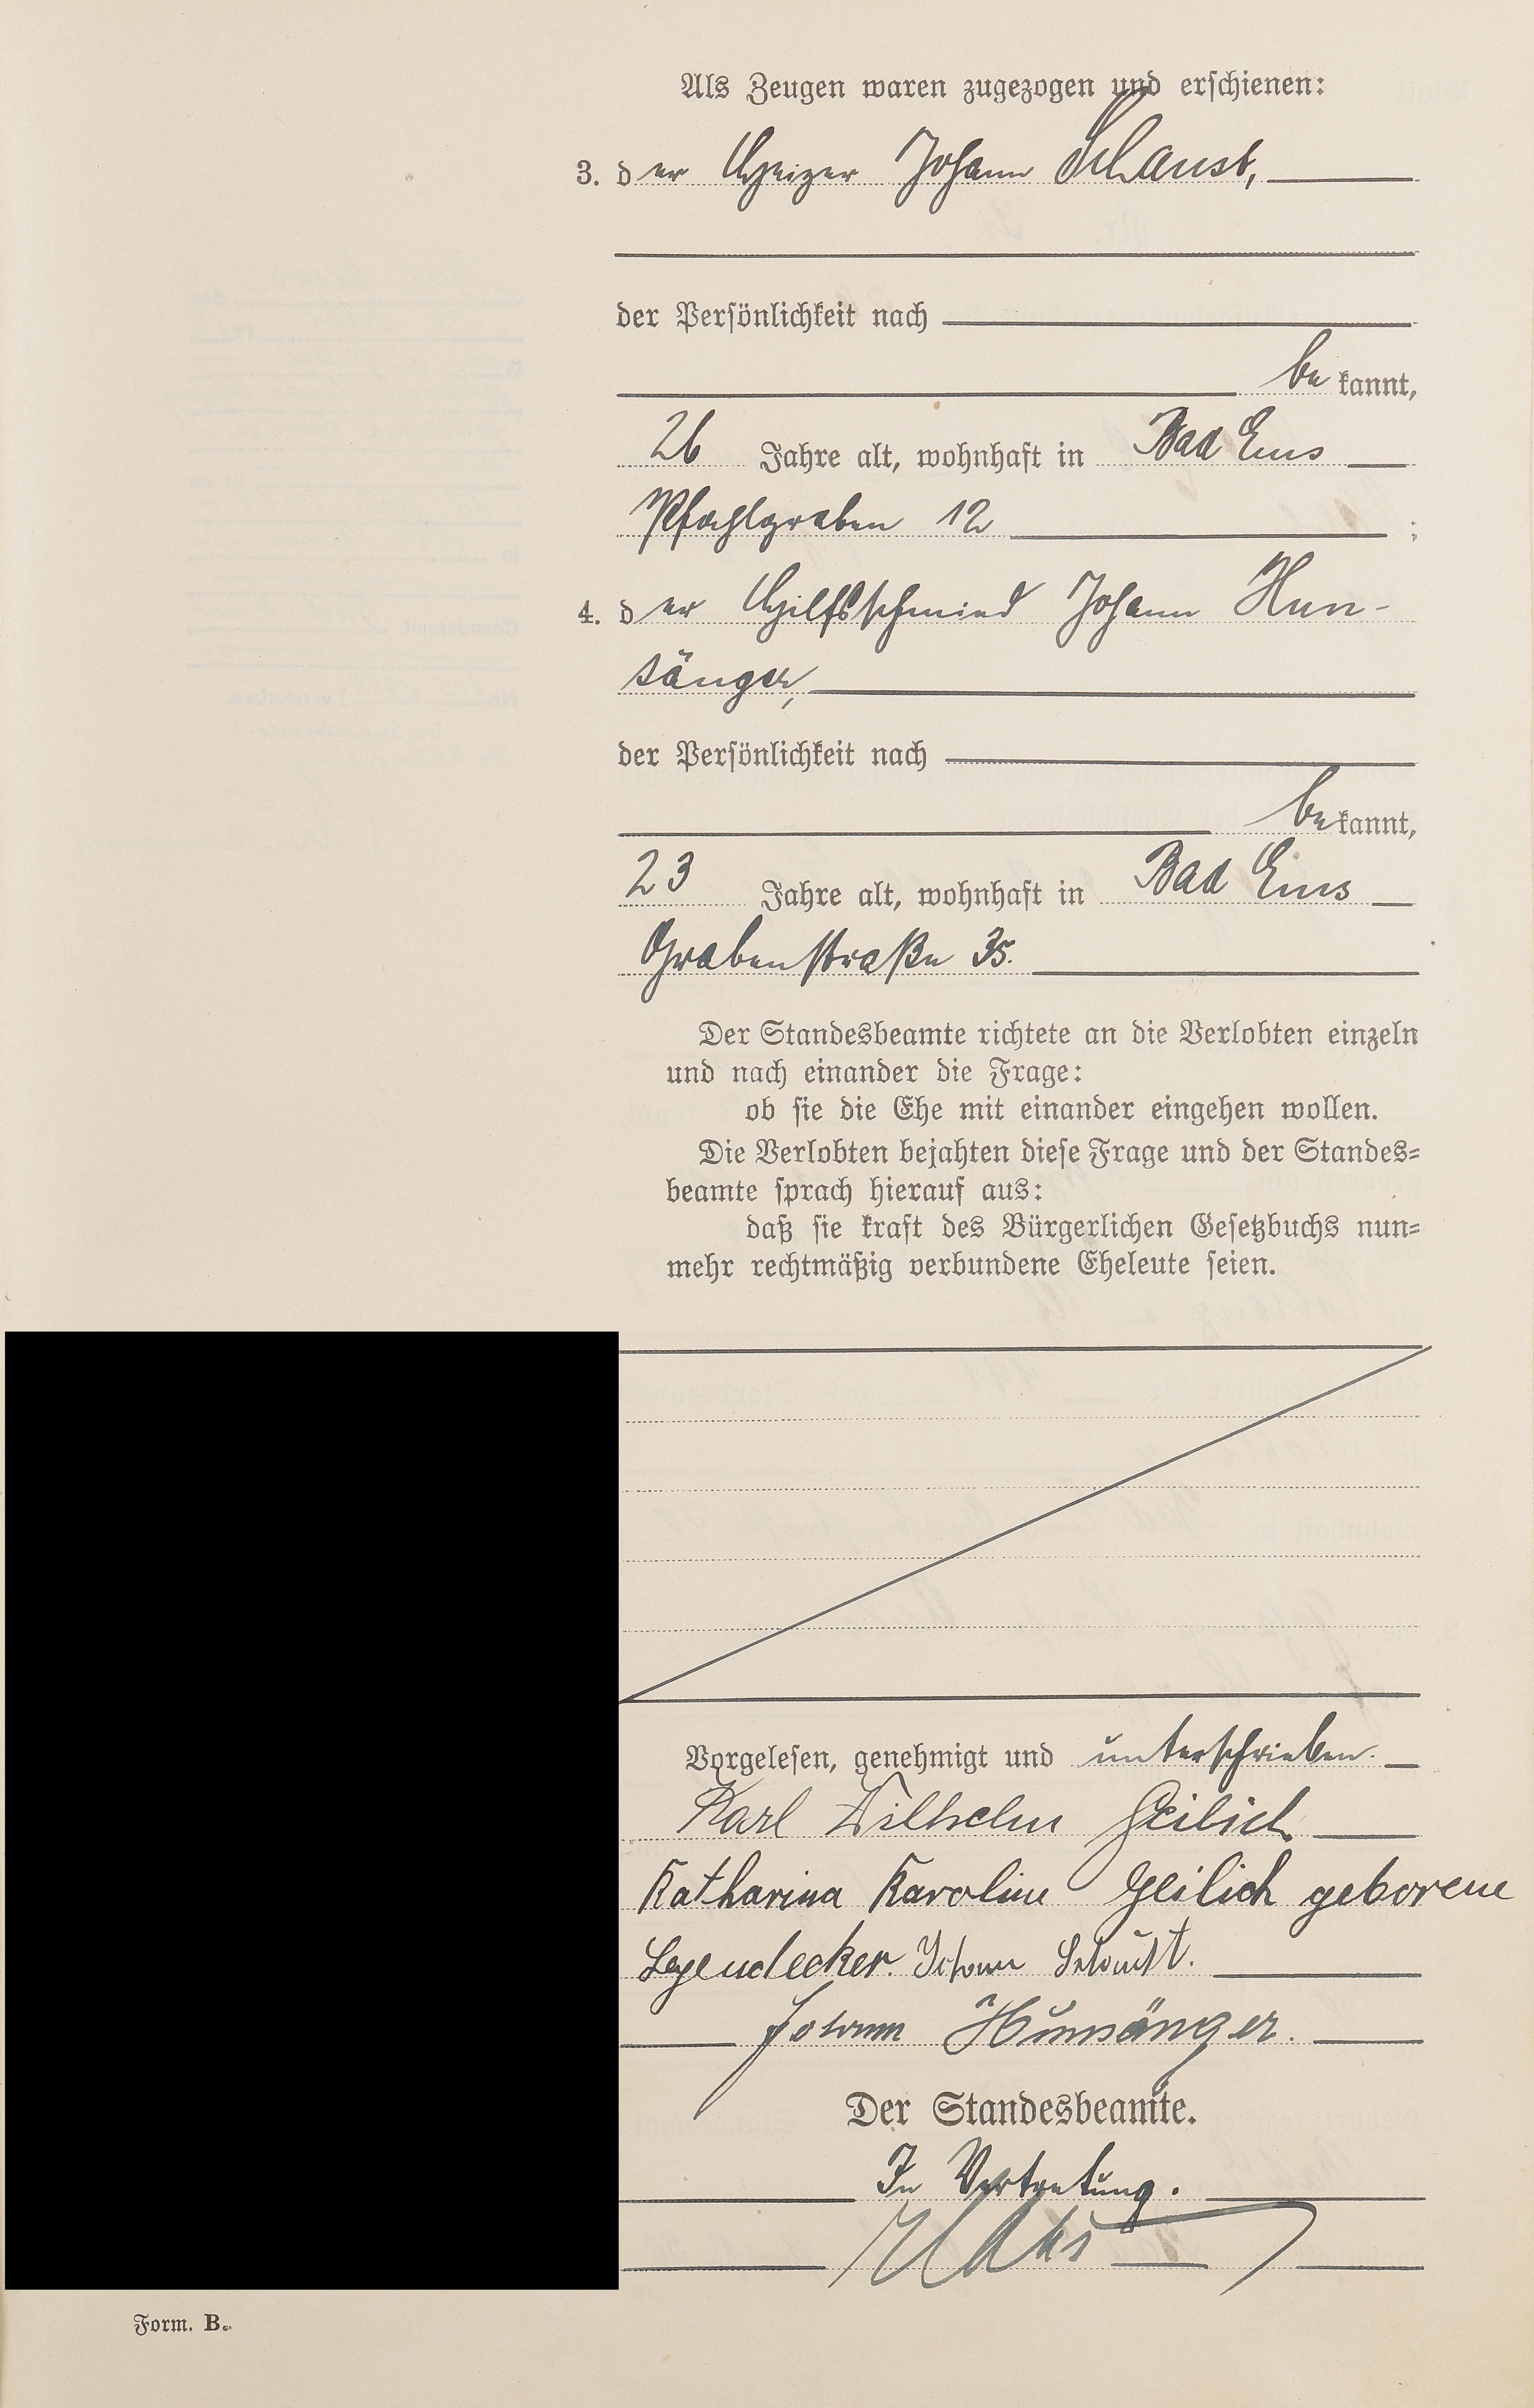 Als Zeugen waren zugezogen und erschienen:
3. der Heizer Johann Schaust,
der Persönlichkeit nach
bekannt,
26 Jahre alt, wohnhaft in Bad Ems
Pfahlgraben 12 ;
4. der Hilfsschmied Johann Hun-
sänger,
der Persönlichkeit nach
bekannt,
23 Jahre alt, wohnhaft in Bad Ems
Grabenstraße 35.
Der Standesbeamte richtete an die Verlobten einzeln
und nach einander die Frage:
ob sie die Ehe mit einander eingehen wollen.
Die Verlobten bejahten diese Frage und der Standes=
beamte sprach hierauf aus:
daß sie kraft des Bürgerlichen Gesetzbuchs nun=
mehr rechtmäßig verbundene Eheleute seien.
Vorgelesen, genehmigt und unterschrieben.
Karl Wilhelm Geilich
Katharina Karoline Geilich geborene
Legendecker. Johann Schaust.
Johann Hunsänger.
Der Standesbeamte.
In Vertretung.
Form. B.